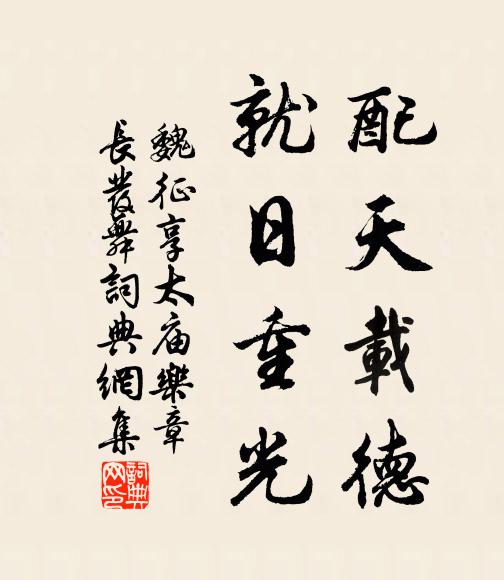 配天載德
就日重光
魏征享太庙樂章
長發舞詞典網集
詞典网印